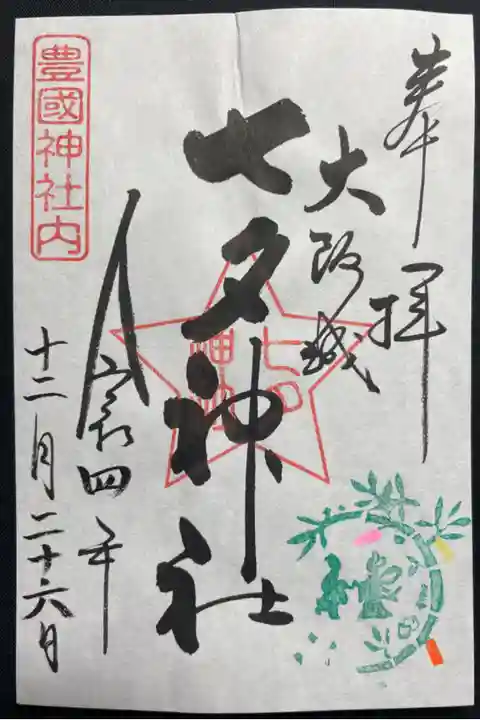 奉拝
大阪城
七夕神社
令和四年
十二月二十六日
豊國神社内